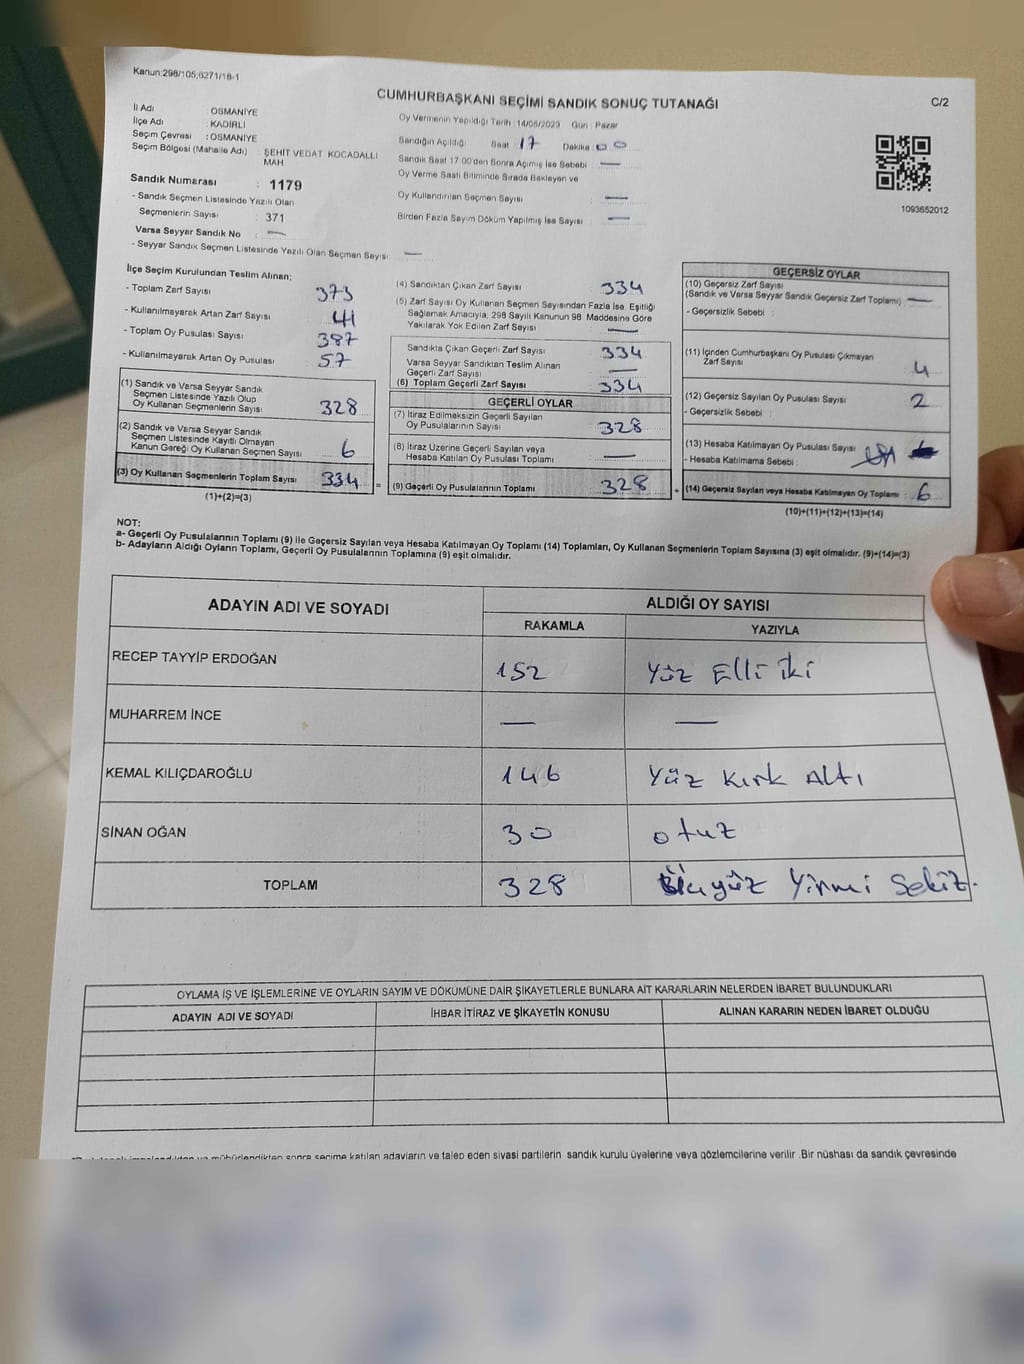 Kanun:298/105;6271/18-1
CUMHURBAŞKANI SEÇİMİ SANDIK SONUÇ TUTANAĞI
C/2
İl Adı OSMANİYE
İlçe Adı : KADİRLİ
Seçim Çevresi : OSMANİYE
Seçim Bölgesi (Mahalle Adı) : ŞEHİT VEDAT KOCADALLI MAH
Sandık Numarası : 1179
- Sandık Seçmen Listesinde Yazılı Olan
Seçmenlerin Sayısı : 371
Varsa Seyyar Sandık No : —
- Seyyar Sandık Seçmen Listesinde Yazılı Olan Seçmen Sayısı —
Oy Vermenin Yapıldığı Tarih :14/05/2023 Gün : Pazar
Sandığın Açıldığı Saat : 17 Dakika 00
Sandık Saat 17:00'den Sonra Açmış İse Sebebi : —
Oy Verme Saati Bitiminde Sırada Bekleyen ve
Oy Kullandırılan Seçmen Sayısı : —
Birden Fazla Sayım Döküm Yapılmış İse Sayısı : —
1093652012
İlçe Seçim Kurulundan Teslim Alınan;
- Toplam Zarf Sayısı 373
- Kullanılmayarak Artan Zarf Sayısı 41
- Toplam Oy Pusulası Sayısı 387
- Kullanılmayarak Artan Oy Pusulası 57
(1) Sandık ve Varsa Seyyar Sandık
Seçmen Listesinde Yazılı Olup
Oy Kullanan Seçmenlerin Sayısı 328
(2) Sandık ve Varsa Seyyar Sandık
Seçmen Listesinde Kayıtlı Olmayan
Kanun Gereği Oy Kullanan Seçmen Sayısı 6
(3) Oy Kullanan Seçmenlerin Toplam Sayısı 334 =
(1)+(2)=(3)
(4) Sandıktan Çıkan Zarf Sayısı 334
(5) Zarf Sayısı Oy Kullanan Seçmen Sayısından Fazla İse, Eşitliği
Sağlamak Amacıyla, 298 Sayılı Kanunun 98. Maddesine Göre
Yakılarak Yok Edilen Zarf Sayısı —
Sandıkta Çıkan Geçerli Zarf Sayısı 334
Varsa Seyyar Sandıktan Teslim Alınan
Geçerli Zarf Sayısı —
(6) Toplam Geçerli Zarf Sayısı 334
GEÇERLİ OYLAR
(7) İtiraz Edilmeksizin Geçerli Sayılan
Oy Pusulalarının Sayısı 328
(8) İtiraz Üzerine Geçerli Sayılan veya
Hesaba Katılan Oy Pusulası Toplamı —
(9) Geçerli Oy Pusulalarının Toplamı 328 +
GEÇERSİZ OYLAR
(10) Geçersiz Zarf Sayısı
(Sandık ve Varsa Seyyar Sandık Geçersiz Zarf Toplamı) —
- Geçersizlik Sebebi :
(11) İçinden Cumhurbaşkanı Oy Pusulası Çıkmayan
Zarf Sayısı 4
(12) Geçersiz Sayılan Oy Pusulası Sayısı 2
- Geçersizlik Sebebi :
(13) Hesaba Katılmayan Oy Pusulası Sayısı :
- Hesaba Katılmama Sebebi :
(14) Geçersiz Sayılan veya Hesaba Katılmayan Oy Toplamı : 6
(10)+(11)+(12)+(13)=(14)
NOT:
a- Geçerli Oy Pusulalarının Toplamı (9) ile Geçersiz Sayılan veya Hesaba Katılmayan Oy Toplamı (14) Toplamları, Oy Kullanan Seçmenlerin Toplam Sayısına (3) eşit olmalıdır. (9)+(14)=(3)
b- Adayların Aldığı Oyların Toplamı, Geçerli Oy Pusulalarının Toplamına (9) eşit olmalıdır.
ADAYIN ADI VE SOYADI ALDIĞI OY SAYISI
RAKAMLA YAZIYLA
RECEP TAYYİP ERDOĞAN 152 Yüz Elli iki
MUHARREM İNCE — —
KEMAL KILIÇDAROĞLU 146 Yüz Kırk Altı
SİNAN OĞAN 30 otuz
TOPLAM 328 Üçyüz Yirmi Sekiz.
OYLAMA İŞ VE İŞLEMLERİNE VE OYLARIN SAYIM VE DÖKÜMÜNE DAİR ŞİKAYETLERLE BUNLARA AİT KARARLARIN NELERDEN İBARET BULUNDUKLARI
ADAYIN ADI VE SOYADI İHBAR İTİRAZ VE ŞİKAYETİN KONUSU ALINAN KARARIN NEDEN İBARET OLDUĞU
mühürlendikten sonra seçime katılan adayların ve talep eden siyasi partilerin sandık kurulu üyelerine veya gözlemcilerine verilir .Bir nüshası da sandık çevresinde